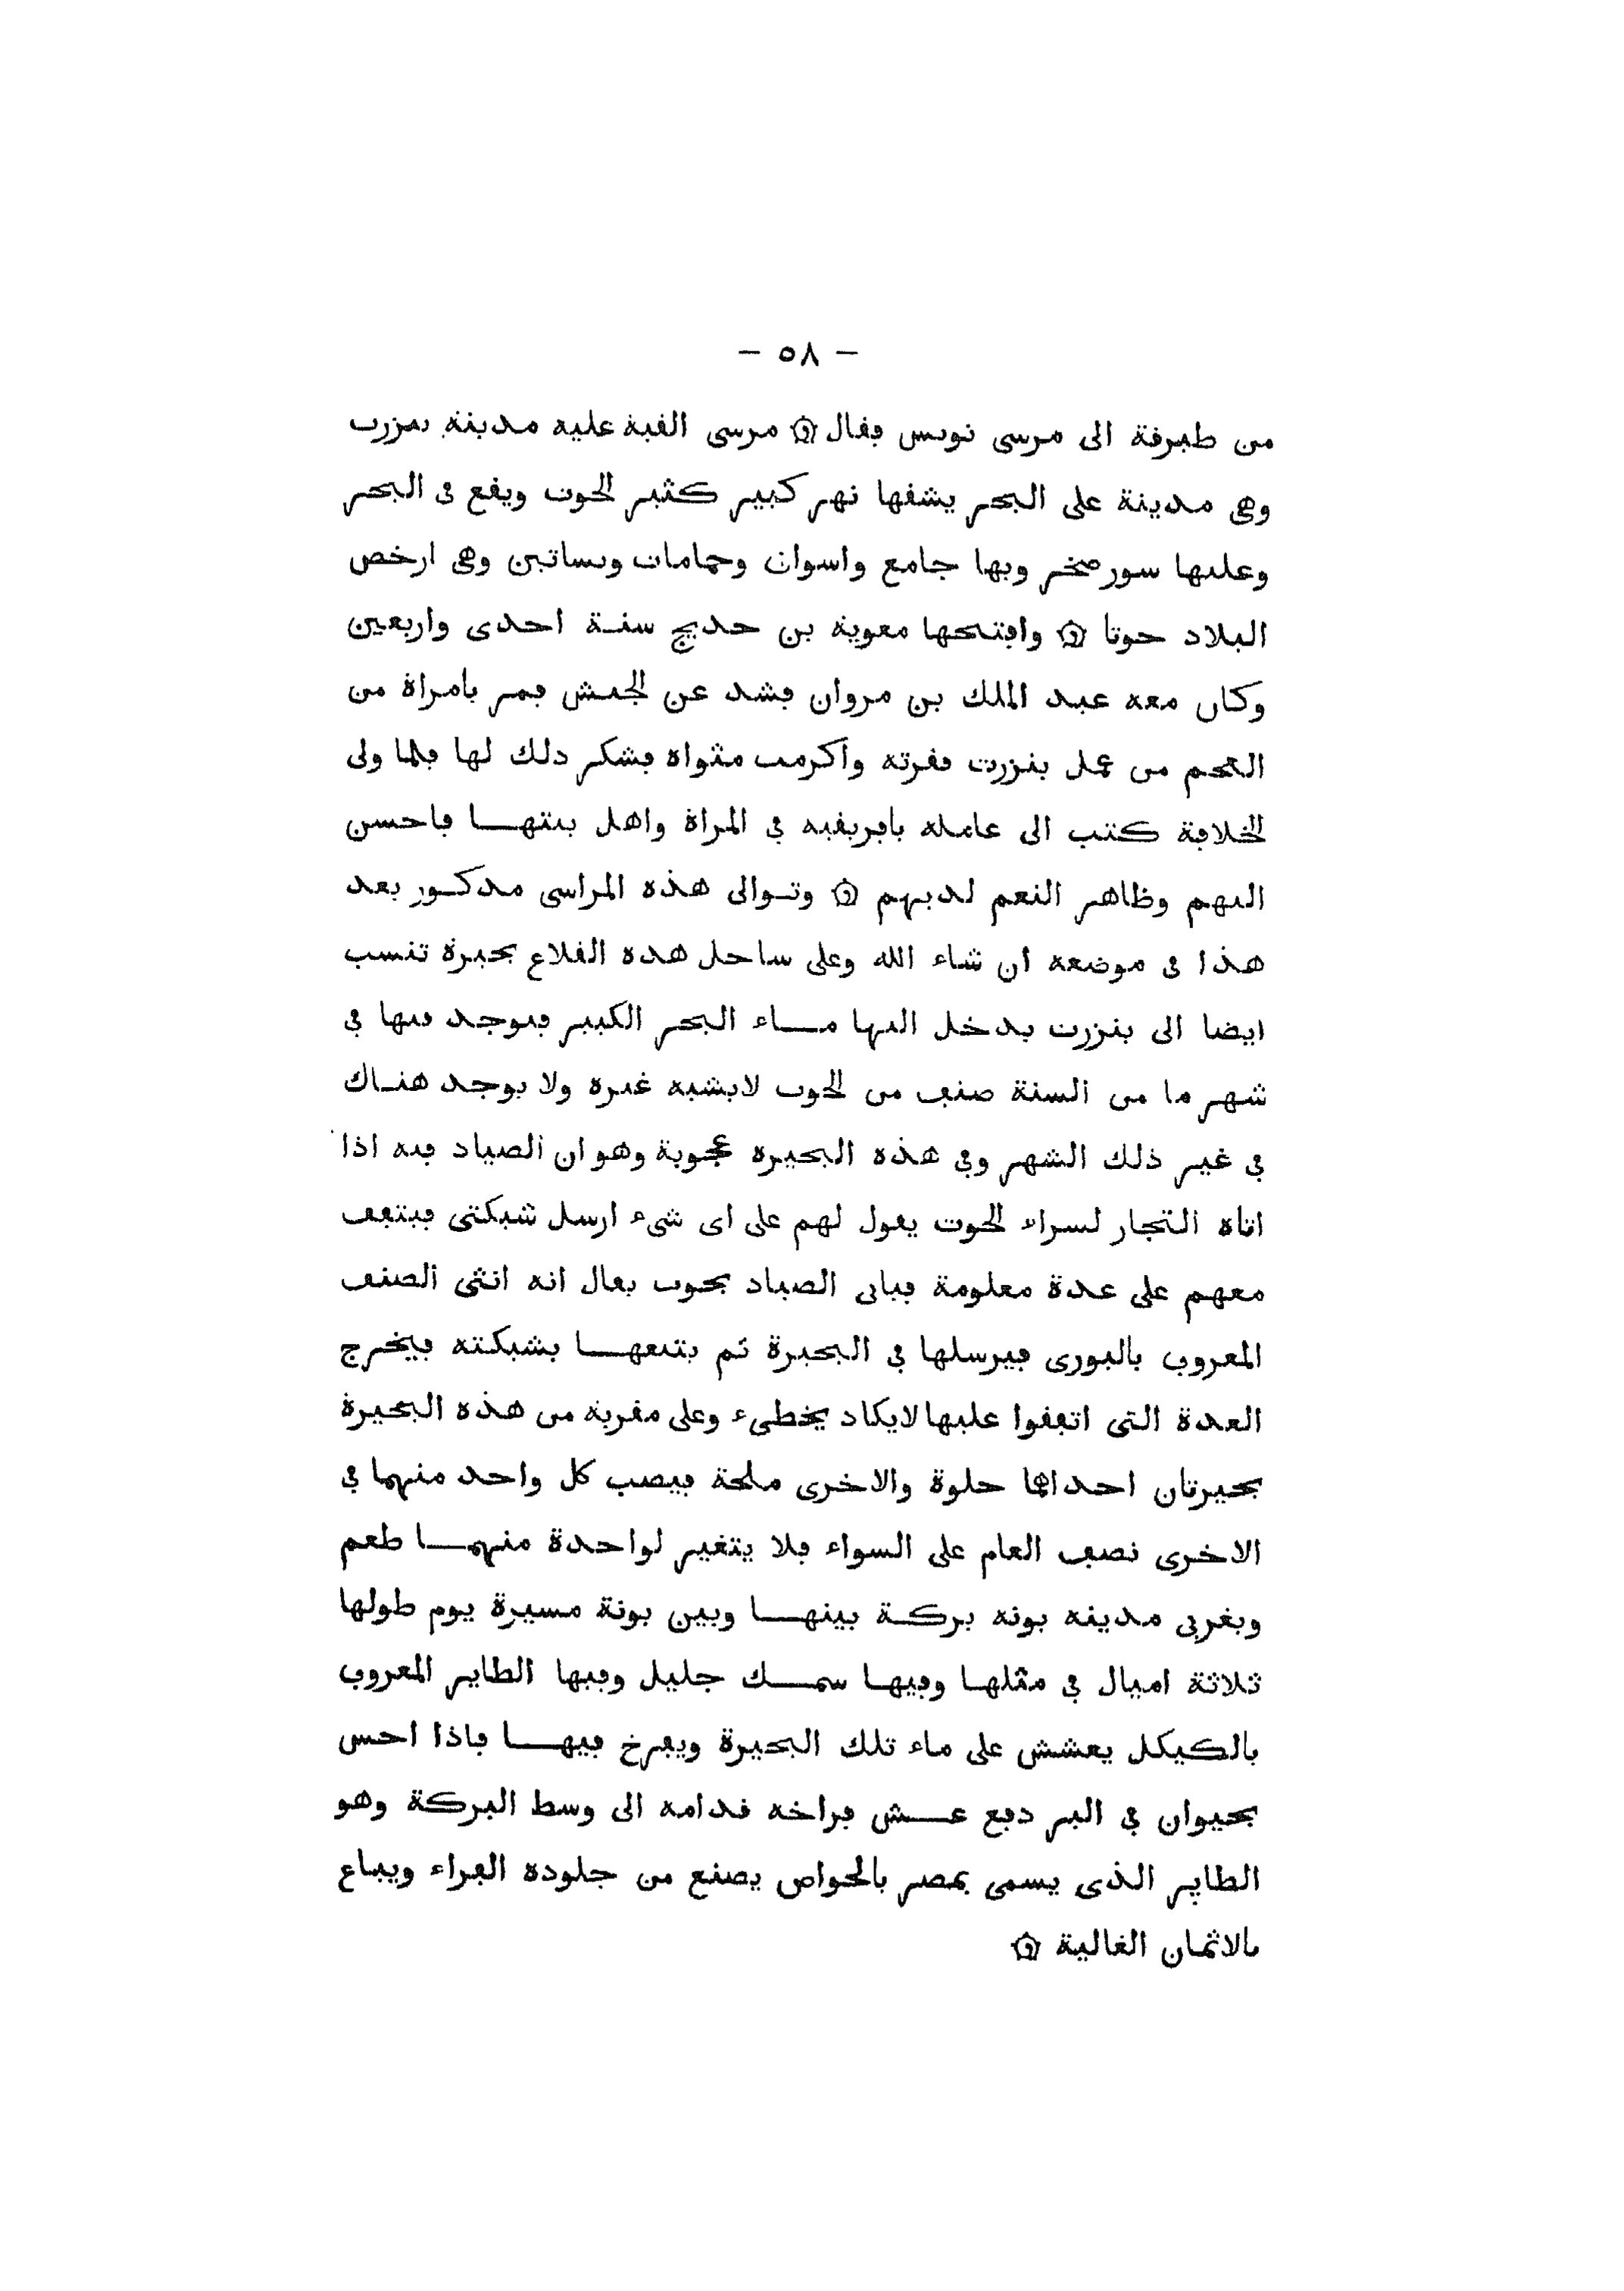 - ٥٨ -
من طبرقة الى مرسى تونس فقال ۞ مرسى القبة عليه مدينة بنزرت
وهى مدينة على البحر يشقها نهر كبير كثير الحوت ويقع فى البحر
وعليها سور صخر وبها جامع واسواق وحمامات وبساتين وهى ارخص
البلاد حوتا ۞ وافتتحها معوية بن حديج سنة احدى واربعين
وكان معه عبد الملك بن مروان فشد عن الجيش فمر بامراة من
العجم من عمل بنزرت فقرته واكرمت مثواه فشكر ذلك لها فلما ولى
الخلافة كتب الى عامله بافريقية في المراة واهل بيتها فاحسن
اليهم وظاهر النعم لديهم ۞ وتوالى هذه المراسى مذكور بعد
هذا فى موضعه ان شاء الله وعلى ساحل هذه القلاع بحيرة تنسب
ايضا الى بنزرت يدخل اليها ماء البحر الكبير فيوجد فيها في
شهر ما من السنة صنف من الحوت لايشبه غيره ولا يوجد هناك
في غير ذلك الشهر وفي هذه البحيرة عجوبة وهو ان الصياد فيه اذا
اتاه التجار لسراء الحوت يقول لهم على اى شىء ارسل شبكتى فيتفف
معهم على عدة معلومة فياتى الصياد بحوت يقال انه انثى الصنف
المعروف بالبورى فيرسلها في البحيرة ثم يتبعها بشبكته فيخرج
العدة التى اتفقوا عليها لايكاد يخطىء وعلى مقربة من هذه البحيرة
بحيرتان احداهما حلوة والاخرى ملحة فيصب كل واحد منهما في
الاخرى نصف العام على السواء فلا يتغير لواحدة منهما طعم
وبغربى مدينه بونه بركة بينها وبين بونة مسيرة يوم طولها
ثلاثة اميال في مثلها وفيها سمك جليل وفيها الطاير المعروف
بالكيكل يعشش على ماء تلك البحيرة ويفرخ فيها فاذا احس
بحيوان في البر دفع عش فراخه قدامه الى وسط البركة وهو
الطاير الذى يسمى بمصر بالحواص يصنع من جلوده الفراء ويباع
بالاثمان الغالية ۞